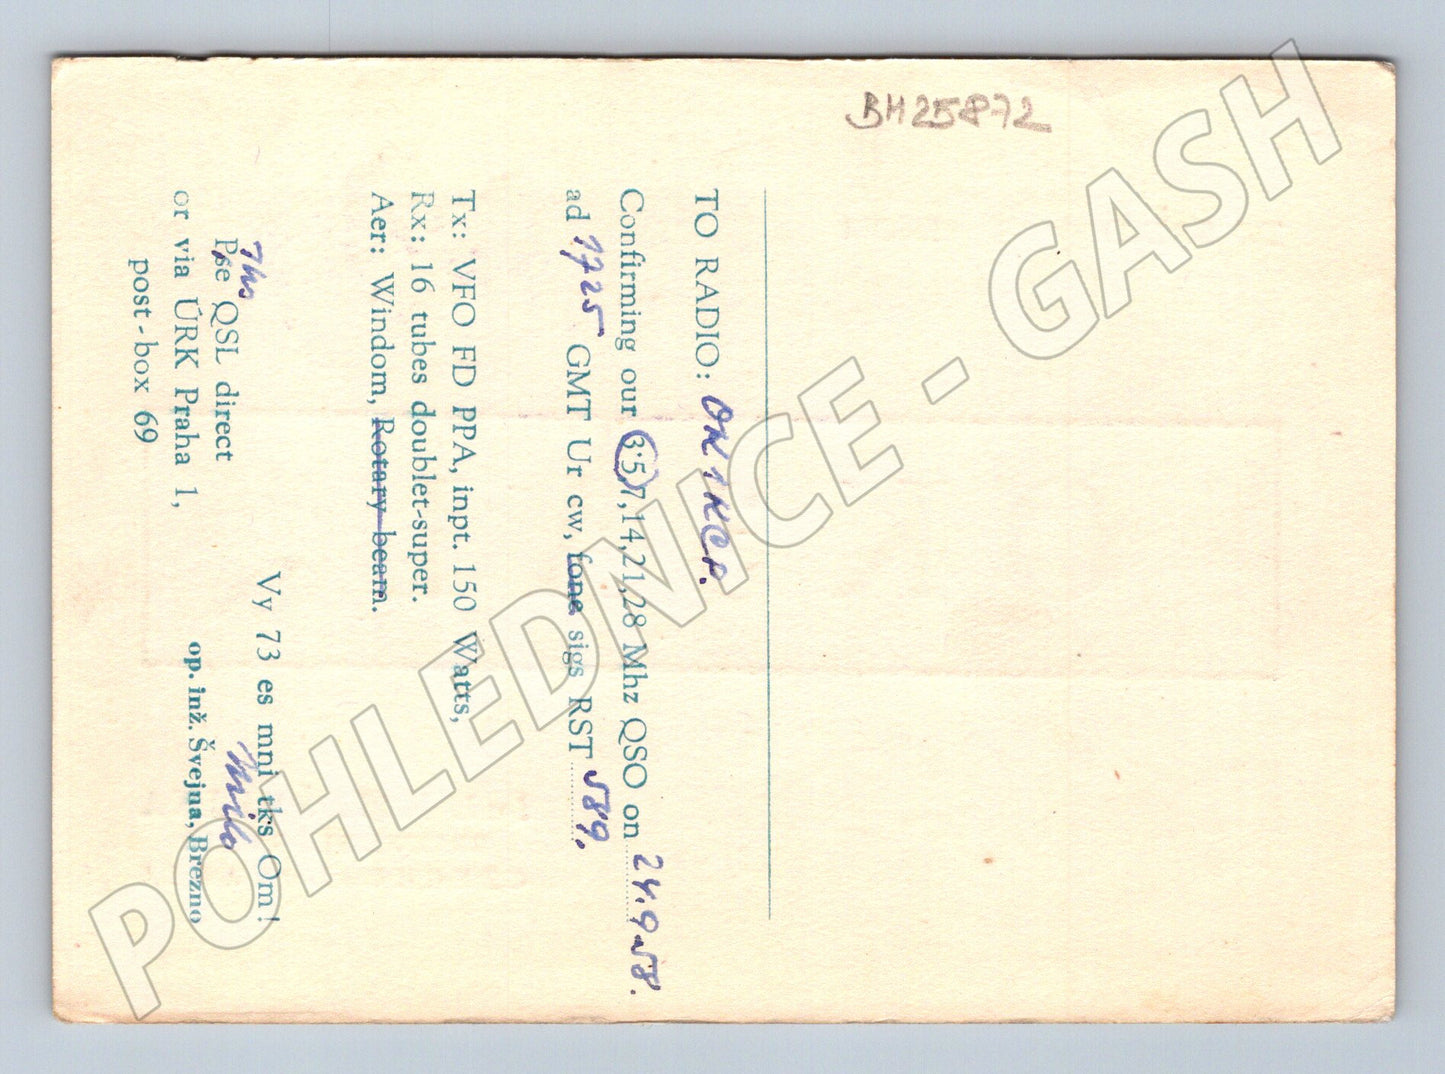 BH25872
TO RADIO: OK1KCP.
Confirming our 3·5,7,14,21,28 Mhz QSO on 24.9.58.
ad 1725 GMT Ur cw, fone sigs RST 589.
Tx: VFO FD PPA, inpt. 150 Watts,
Rx: 16 tubes doublet-super.
Aer: Windom, Rotary beam.
Vy 73 es mni tks Om!
Tks
Pse QSL direct
Milo
or via ÚRK Praha 1,
op. inž. Švejna, Brezno
post-box 69
POHLEDNICE - GASH